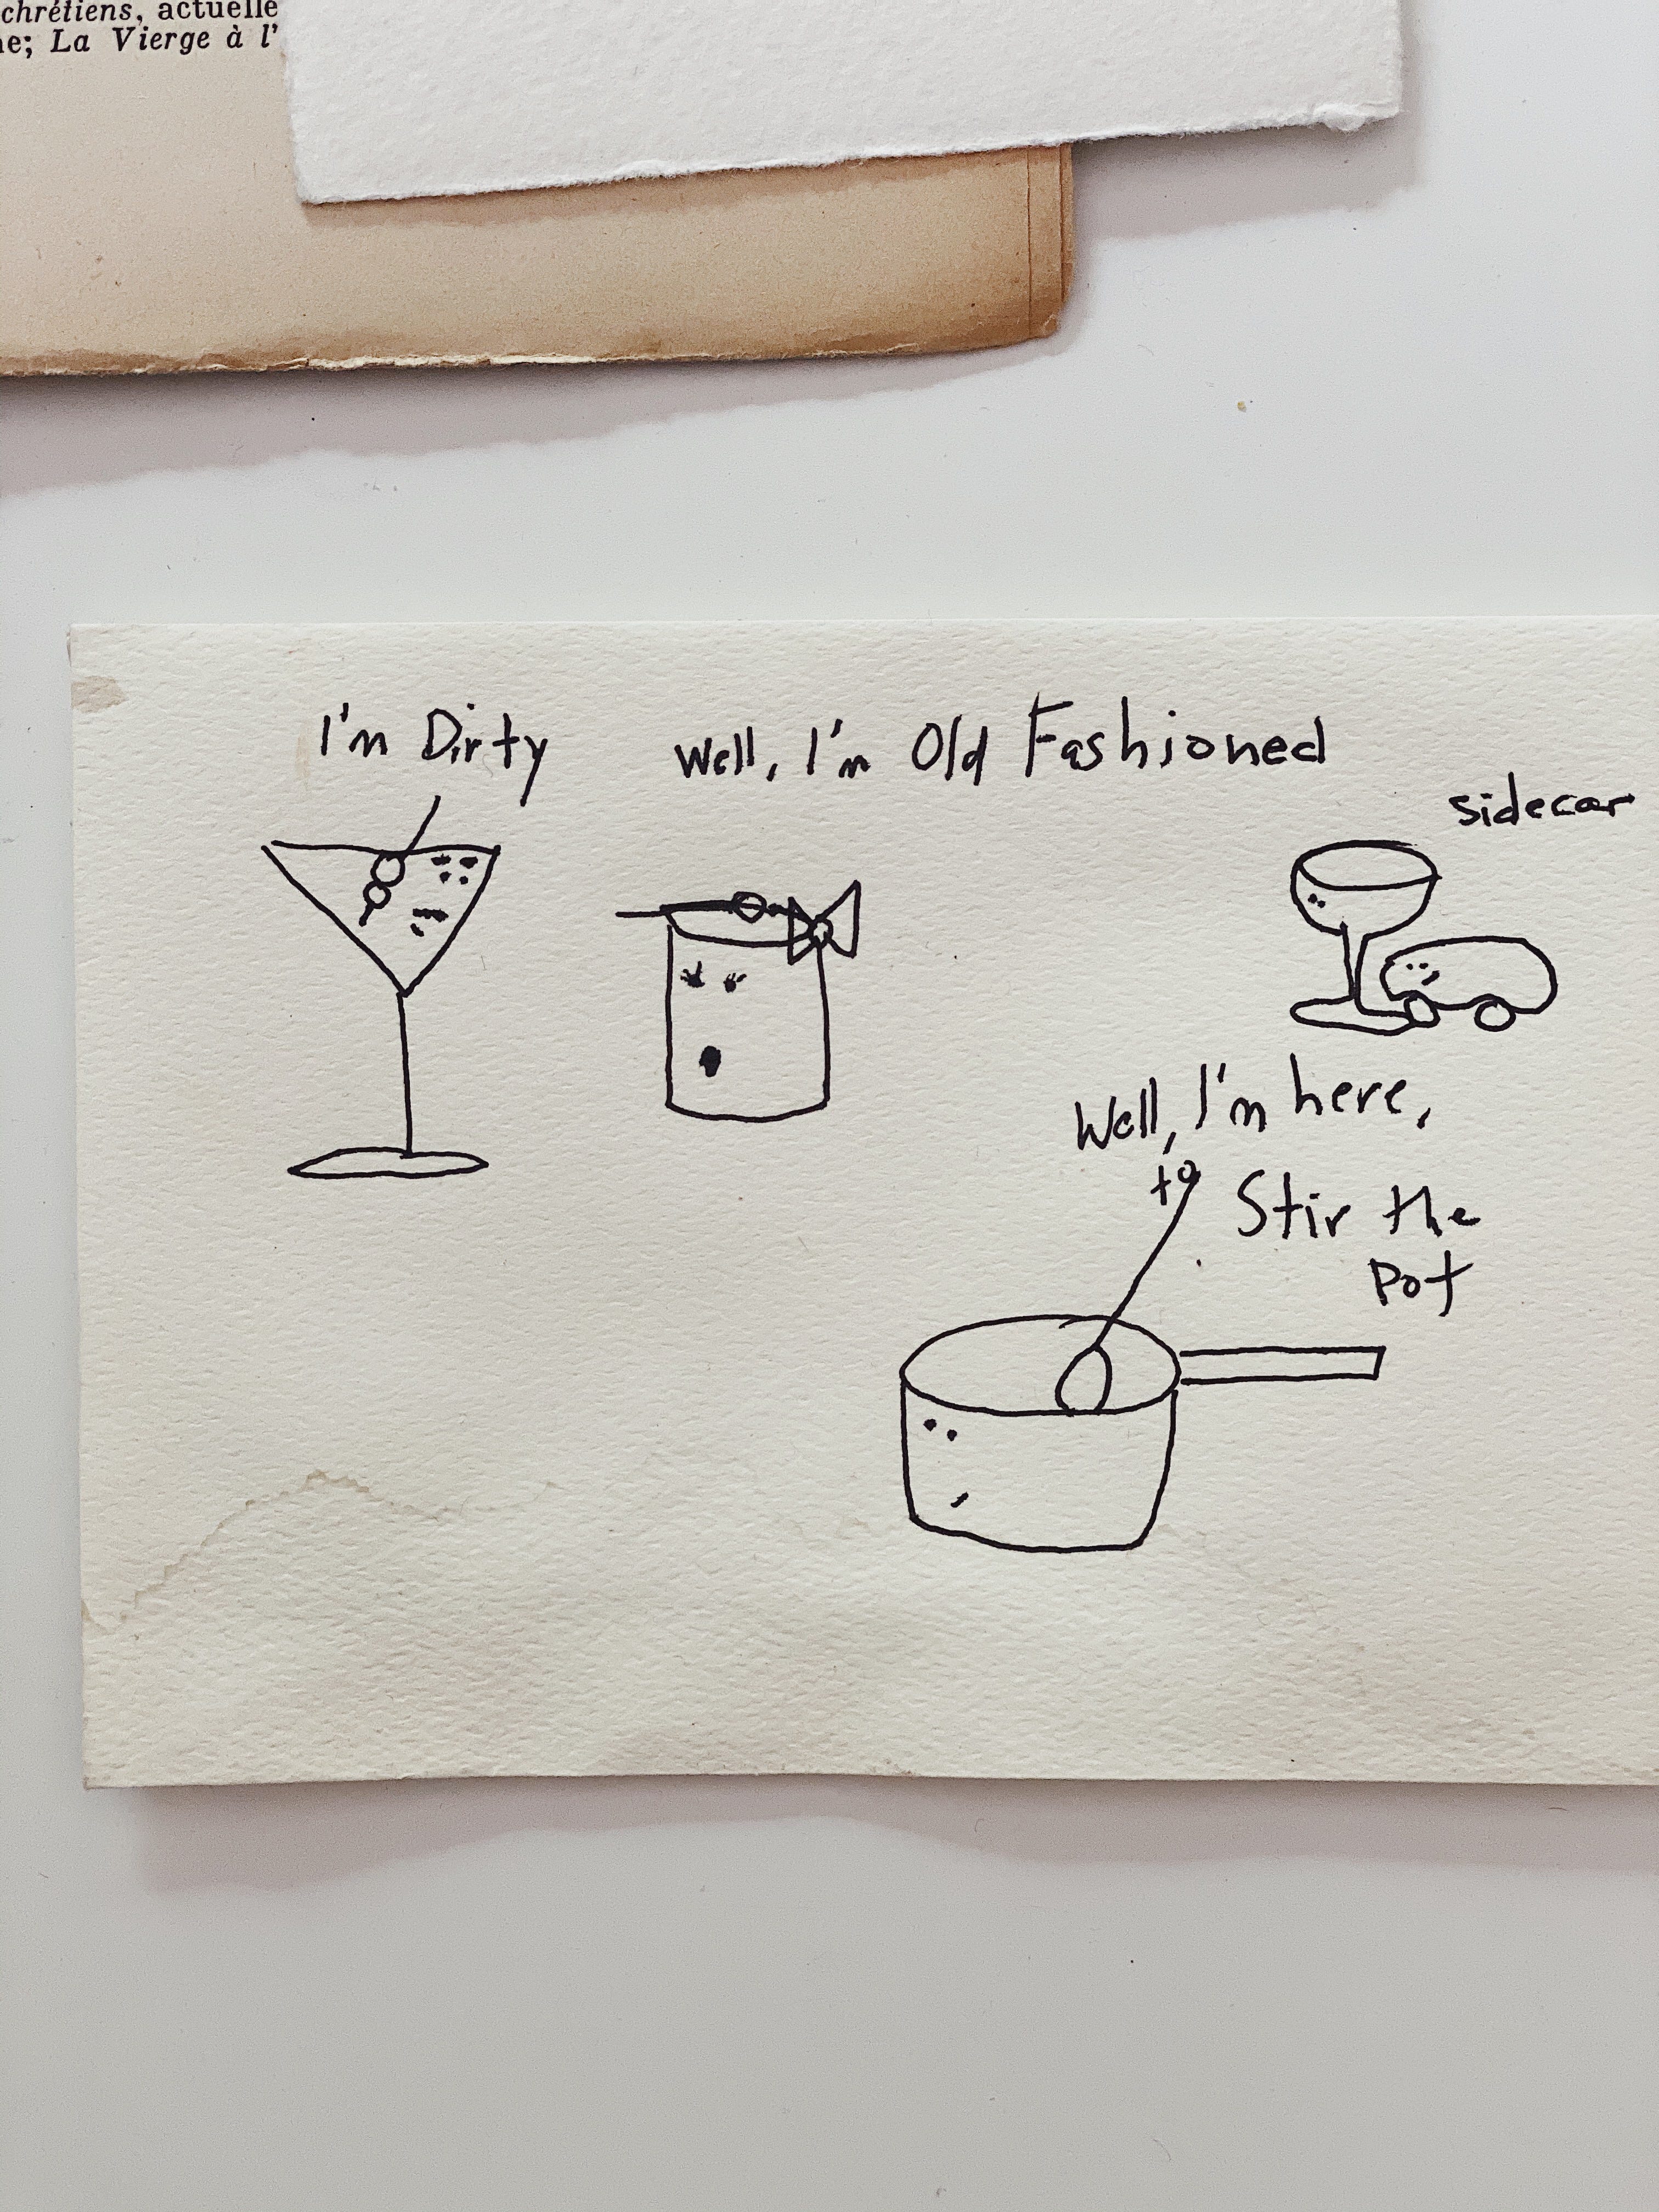 chrétiens, actuelle
ne; La Vierge à l'
I'm Dirty
Well, I'm Old Fashioned
sidecar
Well, I'm here,
to
Stir the
Pot